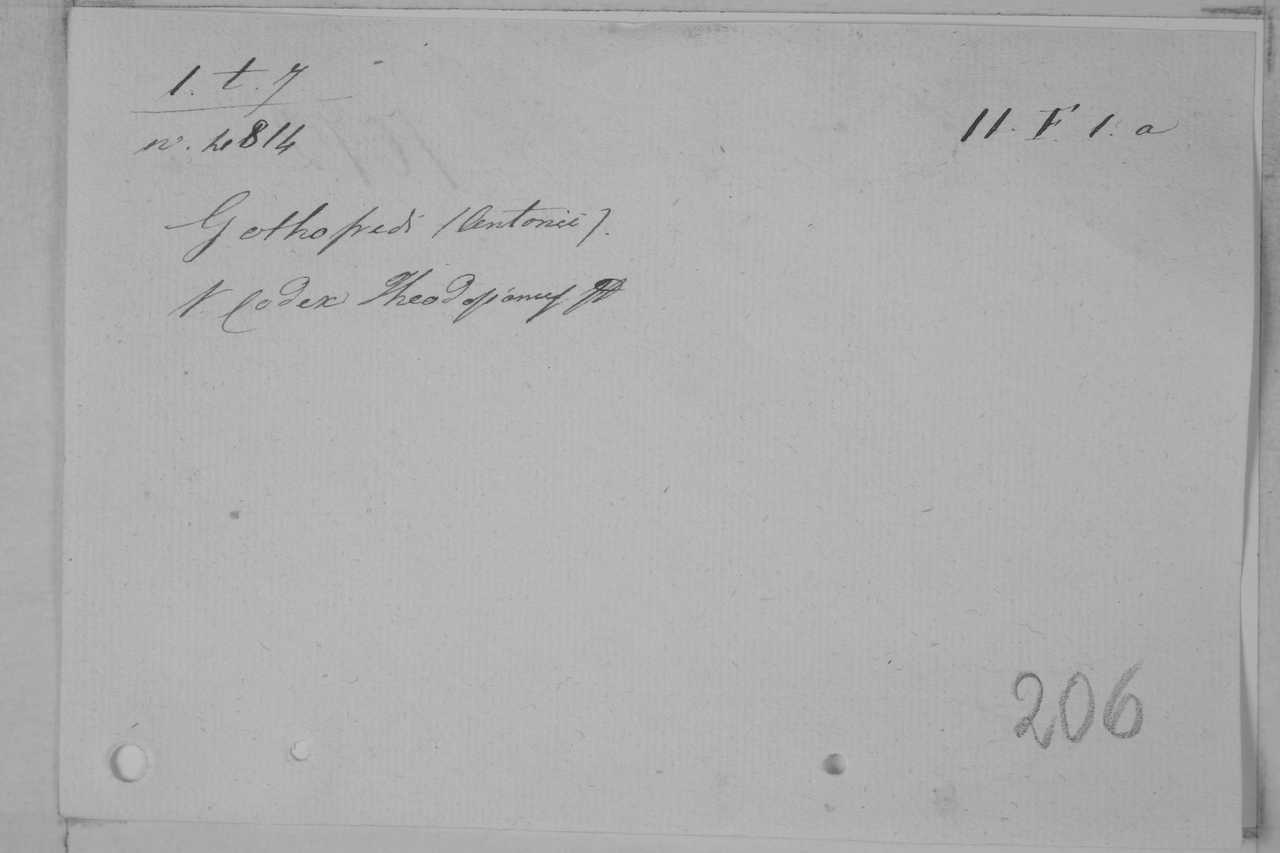 1. t. 7
11. F. 1. a
n°. 4814
Gothofredi (Antonii).
V. Codex Theodosianus
206